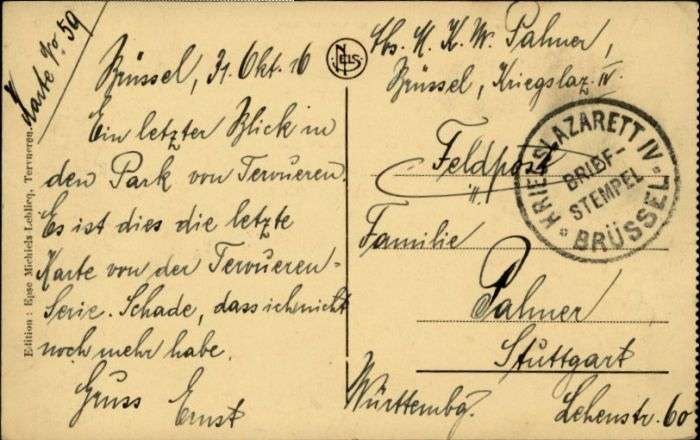 Karte No. 59
Brüssel, 31. Okt. 16
Ein letzter Blick in
den Park von Tervueren.
Es ist dies die letzte
Karte von der Tervueren-
Serie. Schade, dass ich nicht
noch mehr habe.
Gruss Ernst
Edition : Epse Michiels Leblicq, Tervueren.
NELS
Abs. K. K. W. Palmer,
Brüssel, Kriegslaz. IV.
Feldpost
KRIEGSLAZARETT IV
BRIEF-
STEMPEL
* BRÜSSEL *
Familie
Palmer
Stuttgart
Württembg. Lehenstr. 60